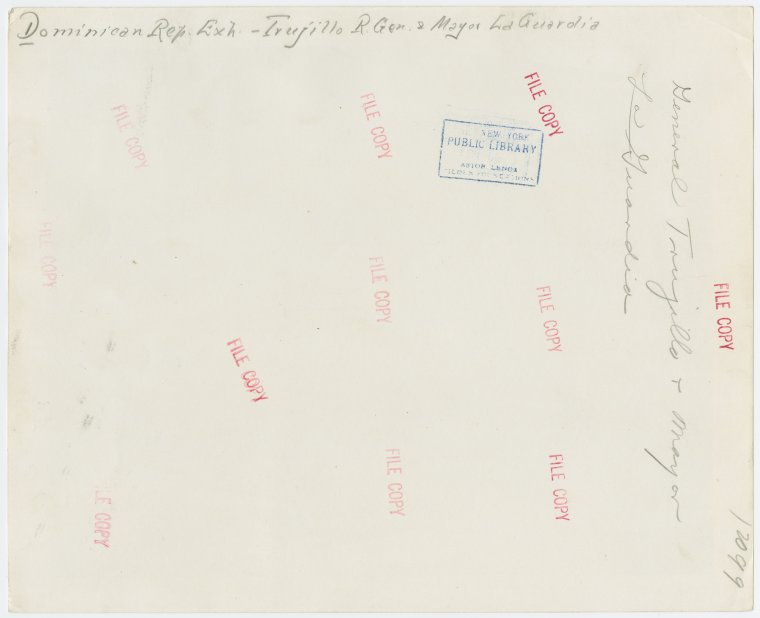 Dominican Rep. Exh. - Trujillo R. Gen. & Mayor La Guardia
General Trujillo + Mayor
La Guardia
NEW YORK
PUBLIC LIBRARY
ASTOR LENOX
TILDEN FOUNDATIONS
FILE COPY
FILE COPY
FILE COPY
FILE COPY
FILE COPY
FILE COPY
FILE COPY
FILE COPY
FILE COPY
FILE COPY
LE COPY